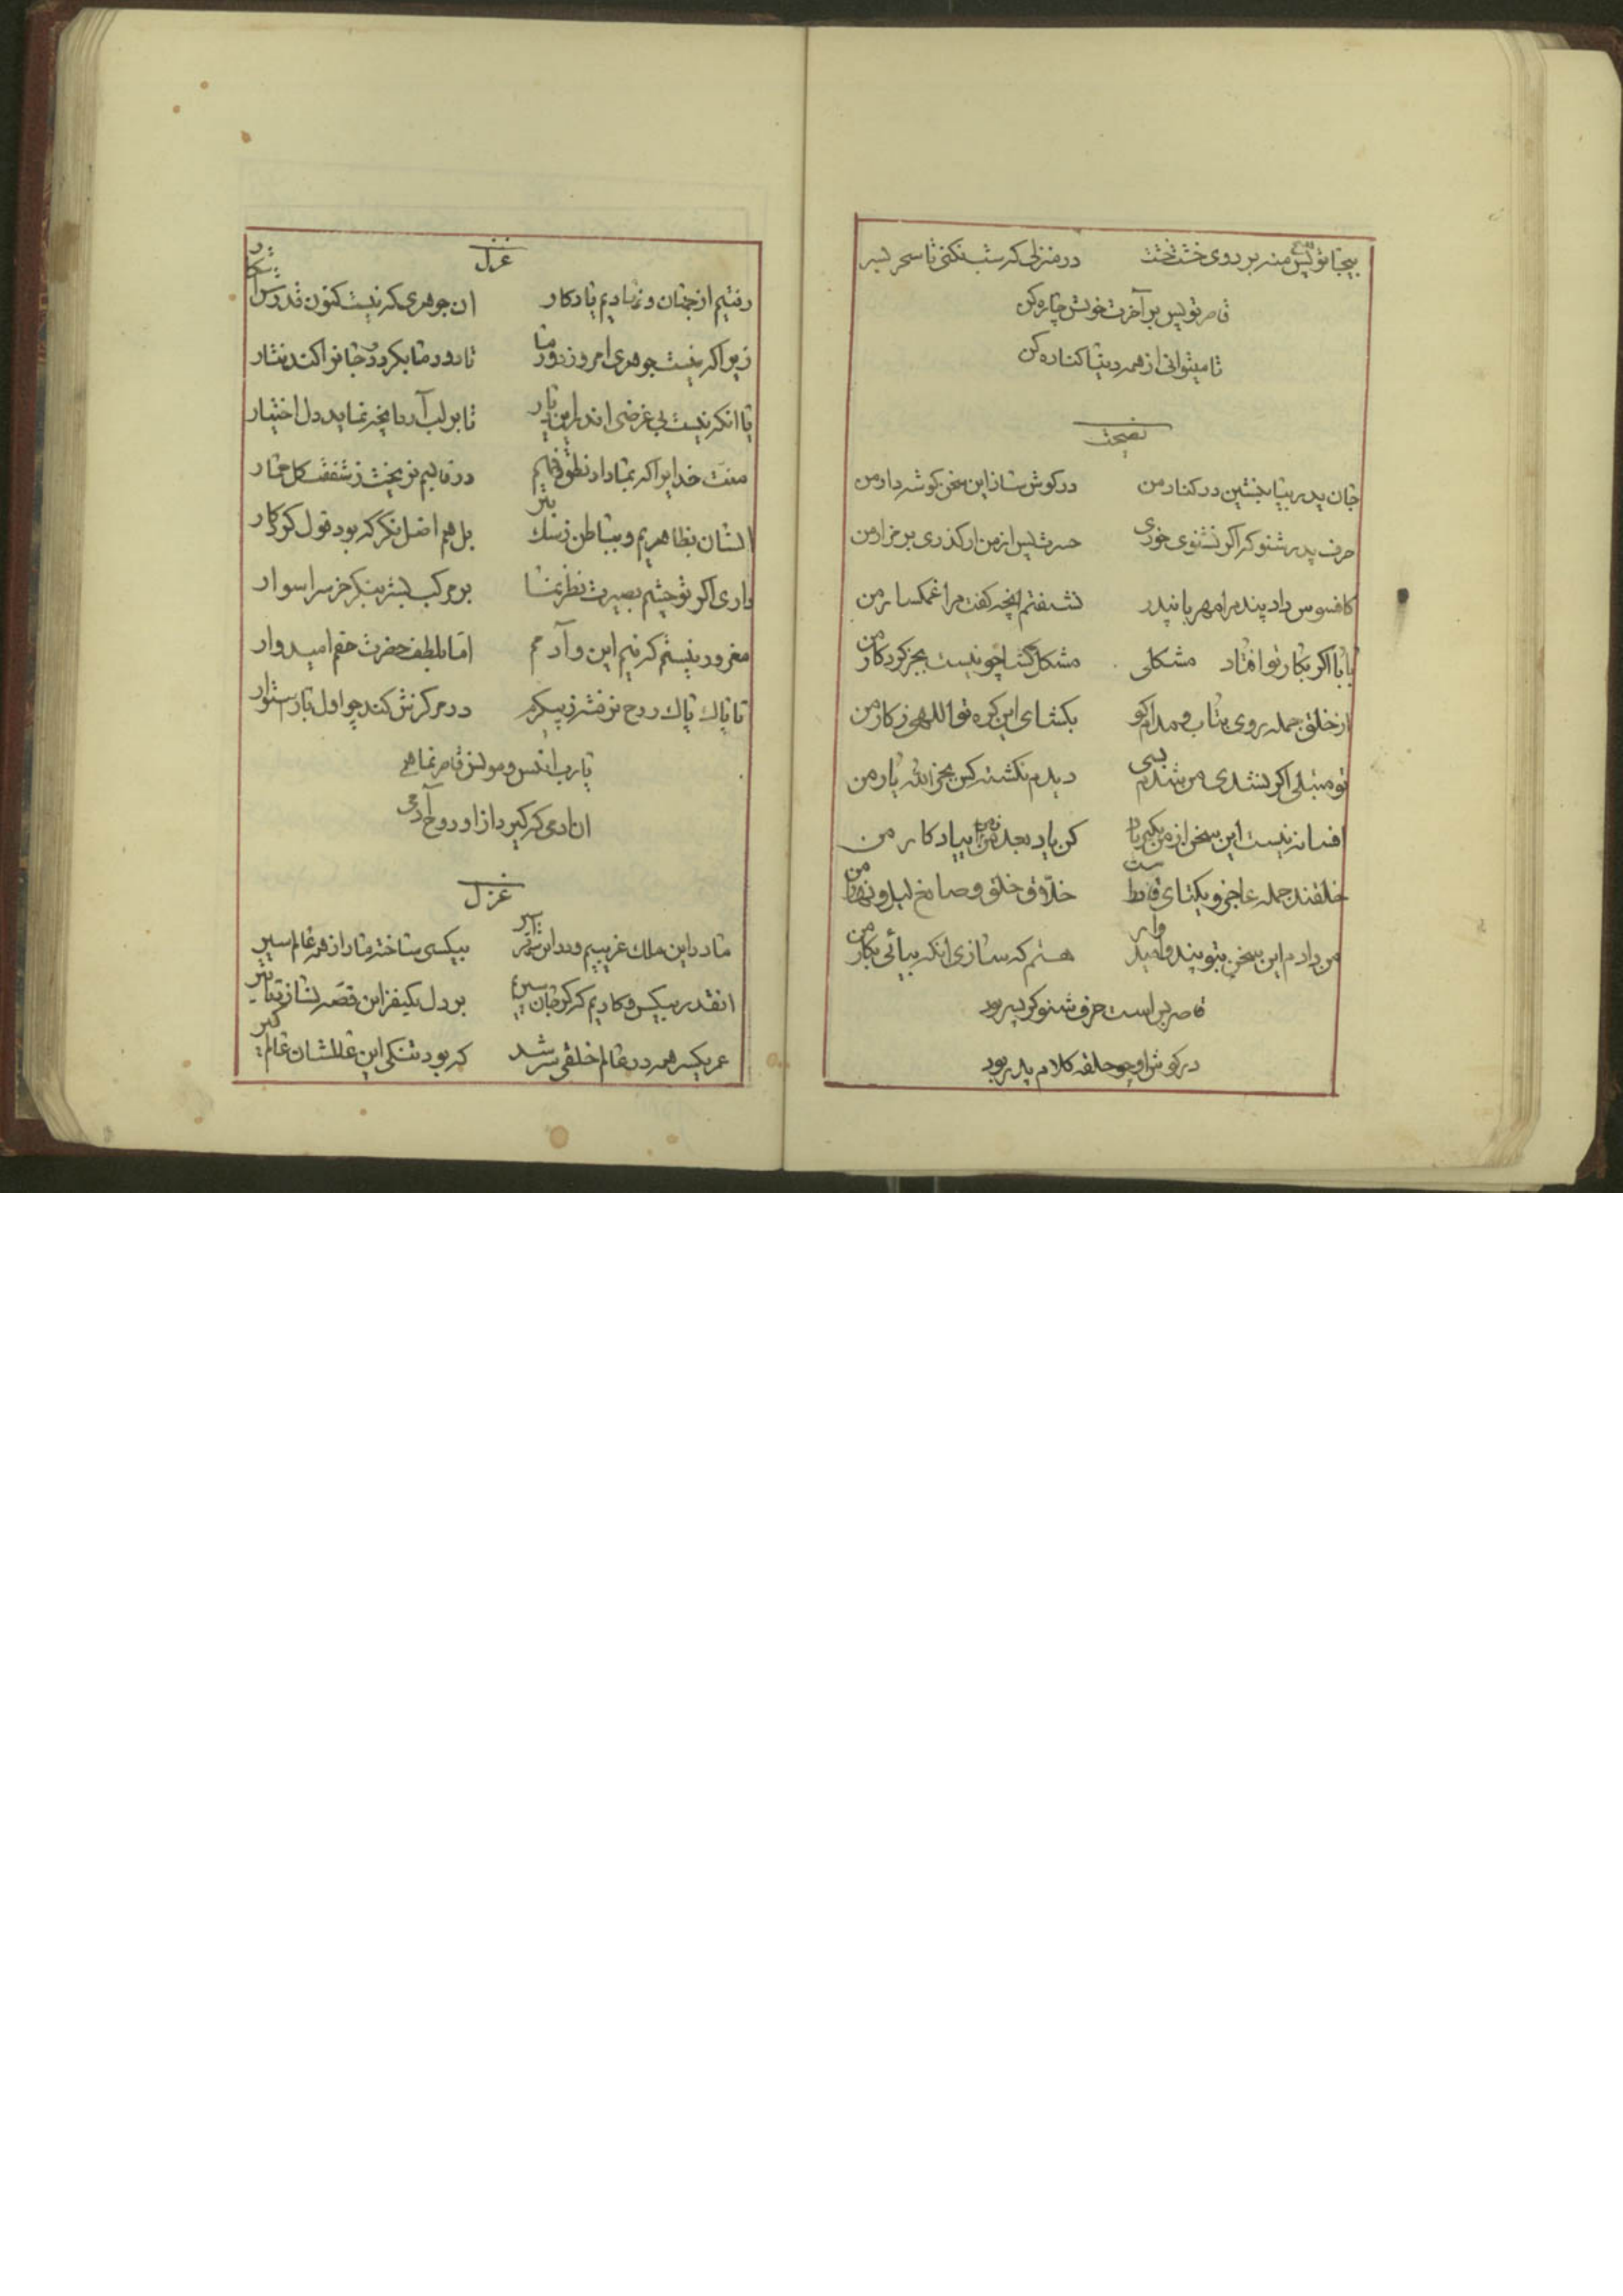 بیجا تو پس منه بر روی خشت تخت در منزلی که شب نکنی تا سحر بسر
قاصر تو پس بر آخرت خویش چاره کن
تا میتوانی از همه دنیا کناره کن
نصیحت
جان پدر بیا بنشین در کنار من در کوش ساز این سخن کوشدار من
حرف پدر شنو که اکر نشنوی خوری حسرت پس از من ار کذری بر مزار من
کافسوس داد پند مرا مهربان پدر نشنفتم انچه کفت مرا غمکسار من
بابا اکر بکار تو افتاد مشکلی مشکل کشا چو نیست بجز کردکار من
از خلق جمله روی بتاب و مدام کو بکشای این کره تو اللهی ز کار من
تو مبتلی اکر نشدی من شدم بسی دیدم نکشته کس بجز الله یار من
افسانه نیست این سخن از من بکیر یاد کن یاد بعد من بیادکار من
خلقند جمله عاجز و یکتای قادر است خلاق خلق و صانع لیل و نهار من
من دادم این سخن بتو پند و امیدوار هستم که سازی انکه بیائی بکار من
قاصر پسر است حرف شنو کو پسر بود
در کوش او چو حلقه کلام پدر بود
غزل
رفتیم از جهان و نهادیم یادکار ان جوهری که نیست کنون قدرش اشکار
زیرا که نیست جوهری امروز دور ما تا دور ما بکردد و جانرا کند نثار
یا انکه نیست بی غرضی اندر این دیار تا بر لب آرد انچه نماید دل اختیار
منت خدایرا که بما داد نطق و فهم در قالبم نریخت ز شفقت کل حمار
انسان بظاهریم و بباطن ز سک بتر بل هم اضل نکر که بود قول کردکار
داری اکر تو چشم بصیرت نظر نما بر مرکب بشر بنکر خر سراسوار
مغرور نیستم که نیم این و آدمم اما بلطف حضرت حقم امیدوار
تا پاک پاک روح نرفته ز پیکرم در مرکزش کند چو اول باز استوار
یا رب انیس و مونس قاصر نما همی
ان ادمی که کیرد از او روح آدمی
غزل
ما در این ملک غریبیم و در این شهر اسیر بیکسی ساخته ما را ز همه عالم سیر
انقدر بیکس و کاریم که کر جان سپریم بر دل یکنفر این قصه نسازد تاثیر
عمر یکسر همه در عالم خلقی سر شد که بود تنکی این عالمشان عالمکیر